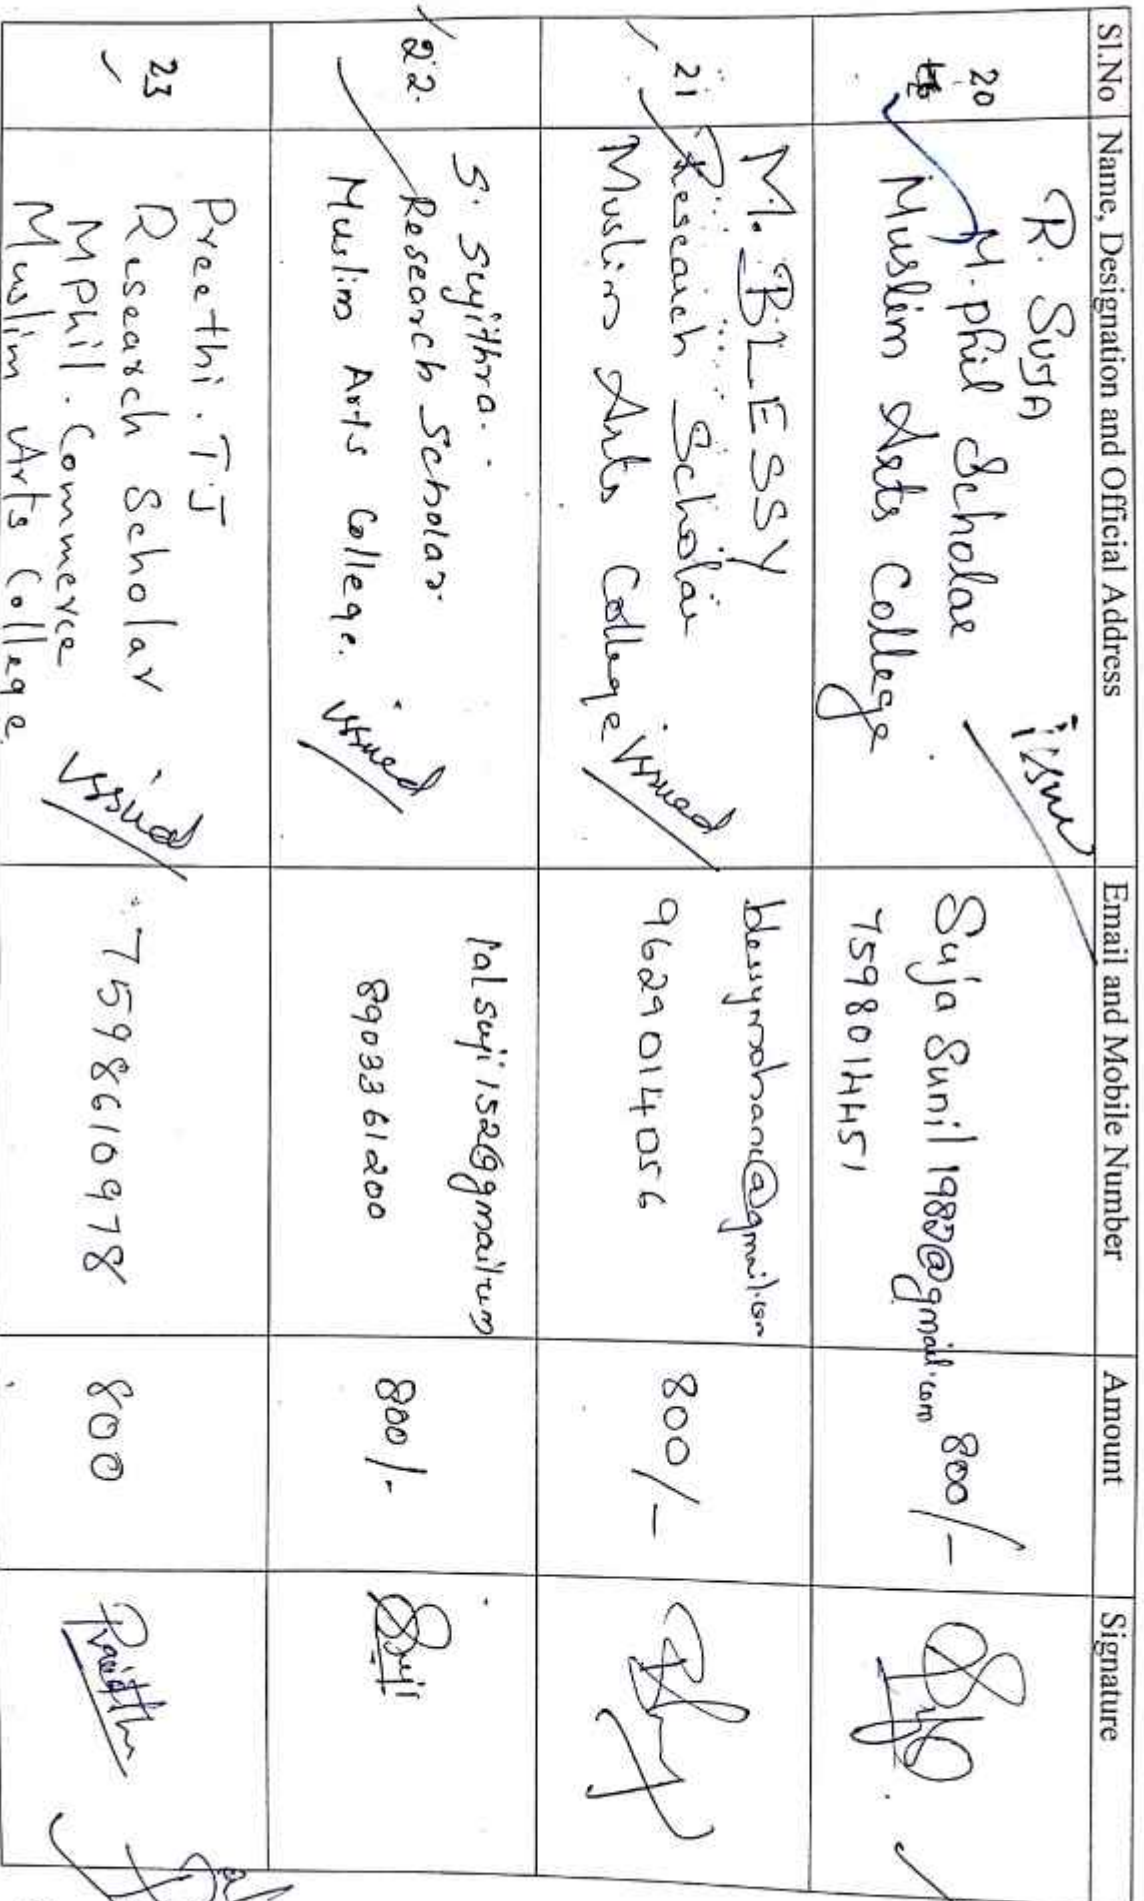 Sl.No Name, Designation and Official Address Email and Mobile Number Amount Signature
20
R. SUJA
M. phil Scholar
Muslim Arts College
issue
Suja Sunil 1982@gmail.com
7598014451
800/-
21
M. BLESSY
Research Scholar
Muslim Arts College
issued
blessymohan@gmail.com
9629014056
800/-
22.
S. Sujithra.
Research Scholar.
Muslim Arts College.
issued
8903361200
800/-
Suji
23
Preethi. T. J
Research Scholar
M Phil. Commerce
Muslim Arts College
issued
7598610978
800
Preethi